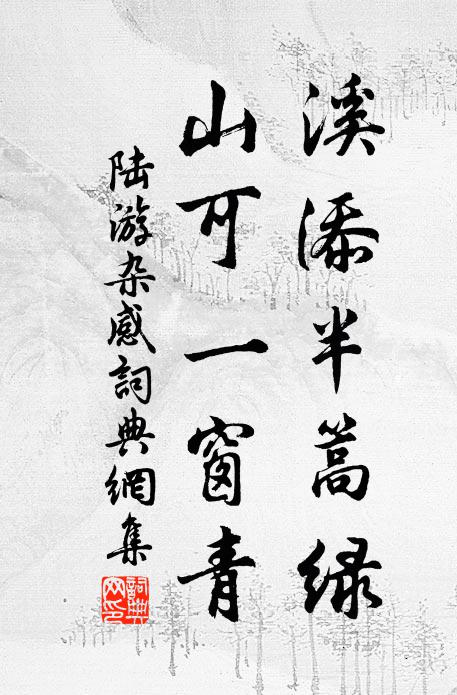 溪添半篙绿
山可一窗青
陆游杂感词典網集
詞典网印